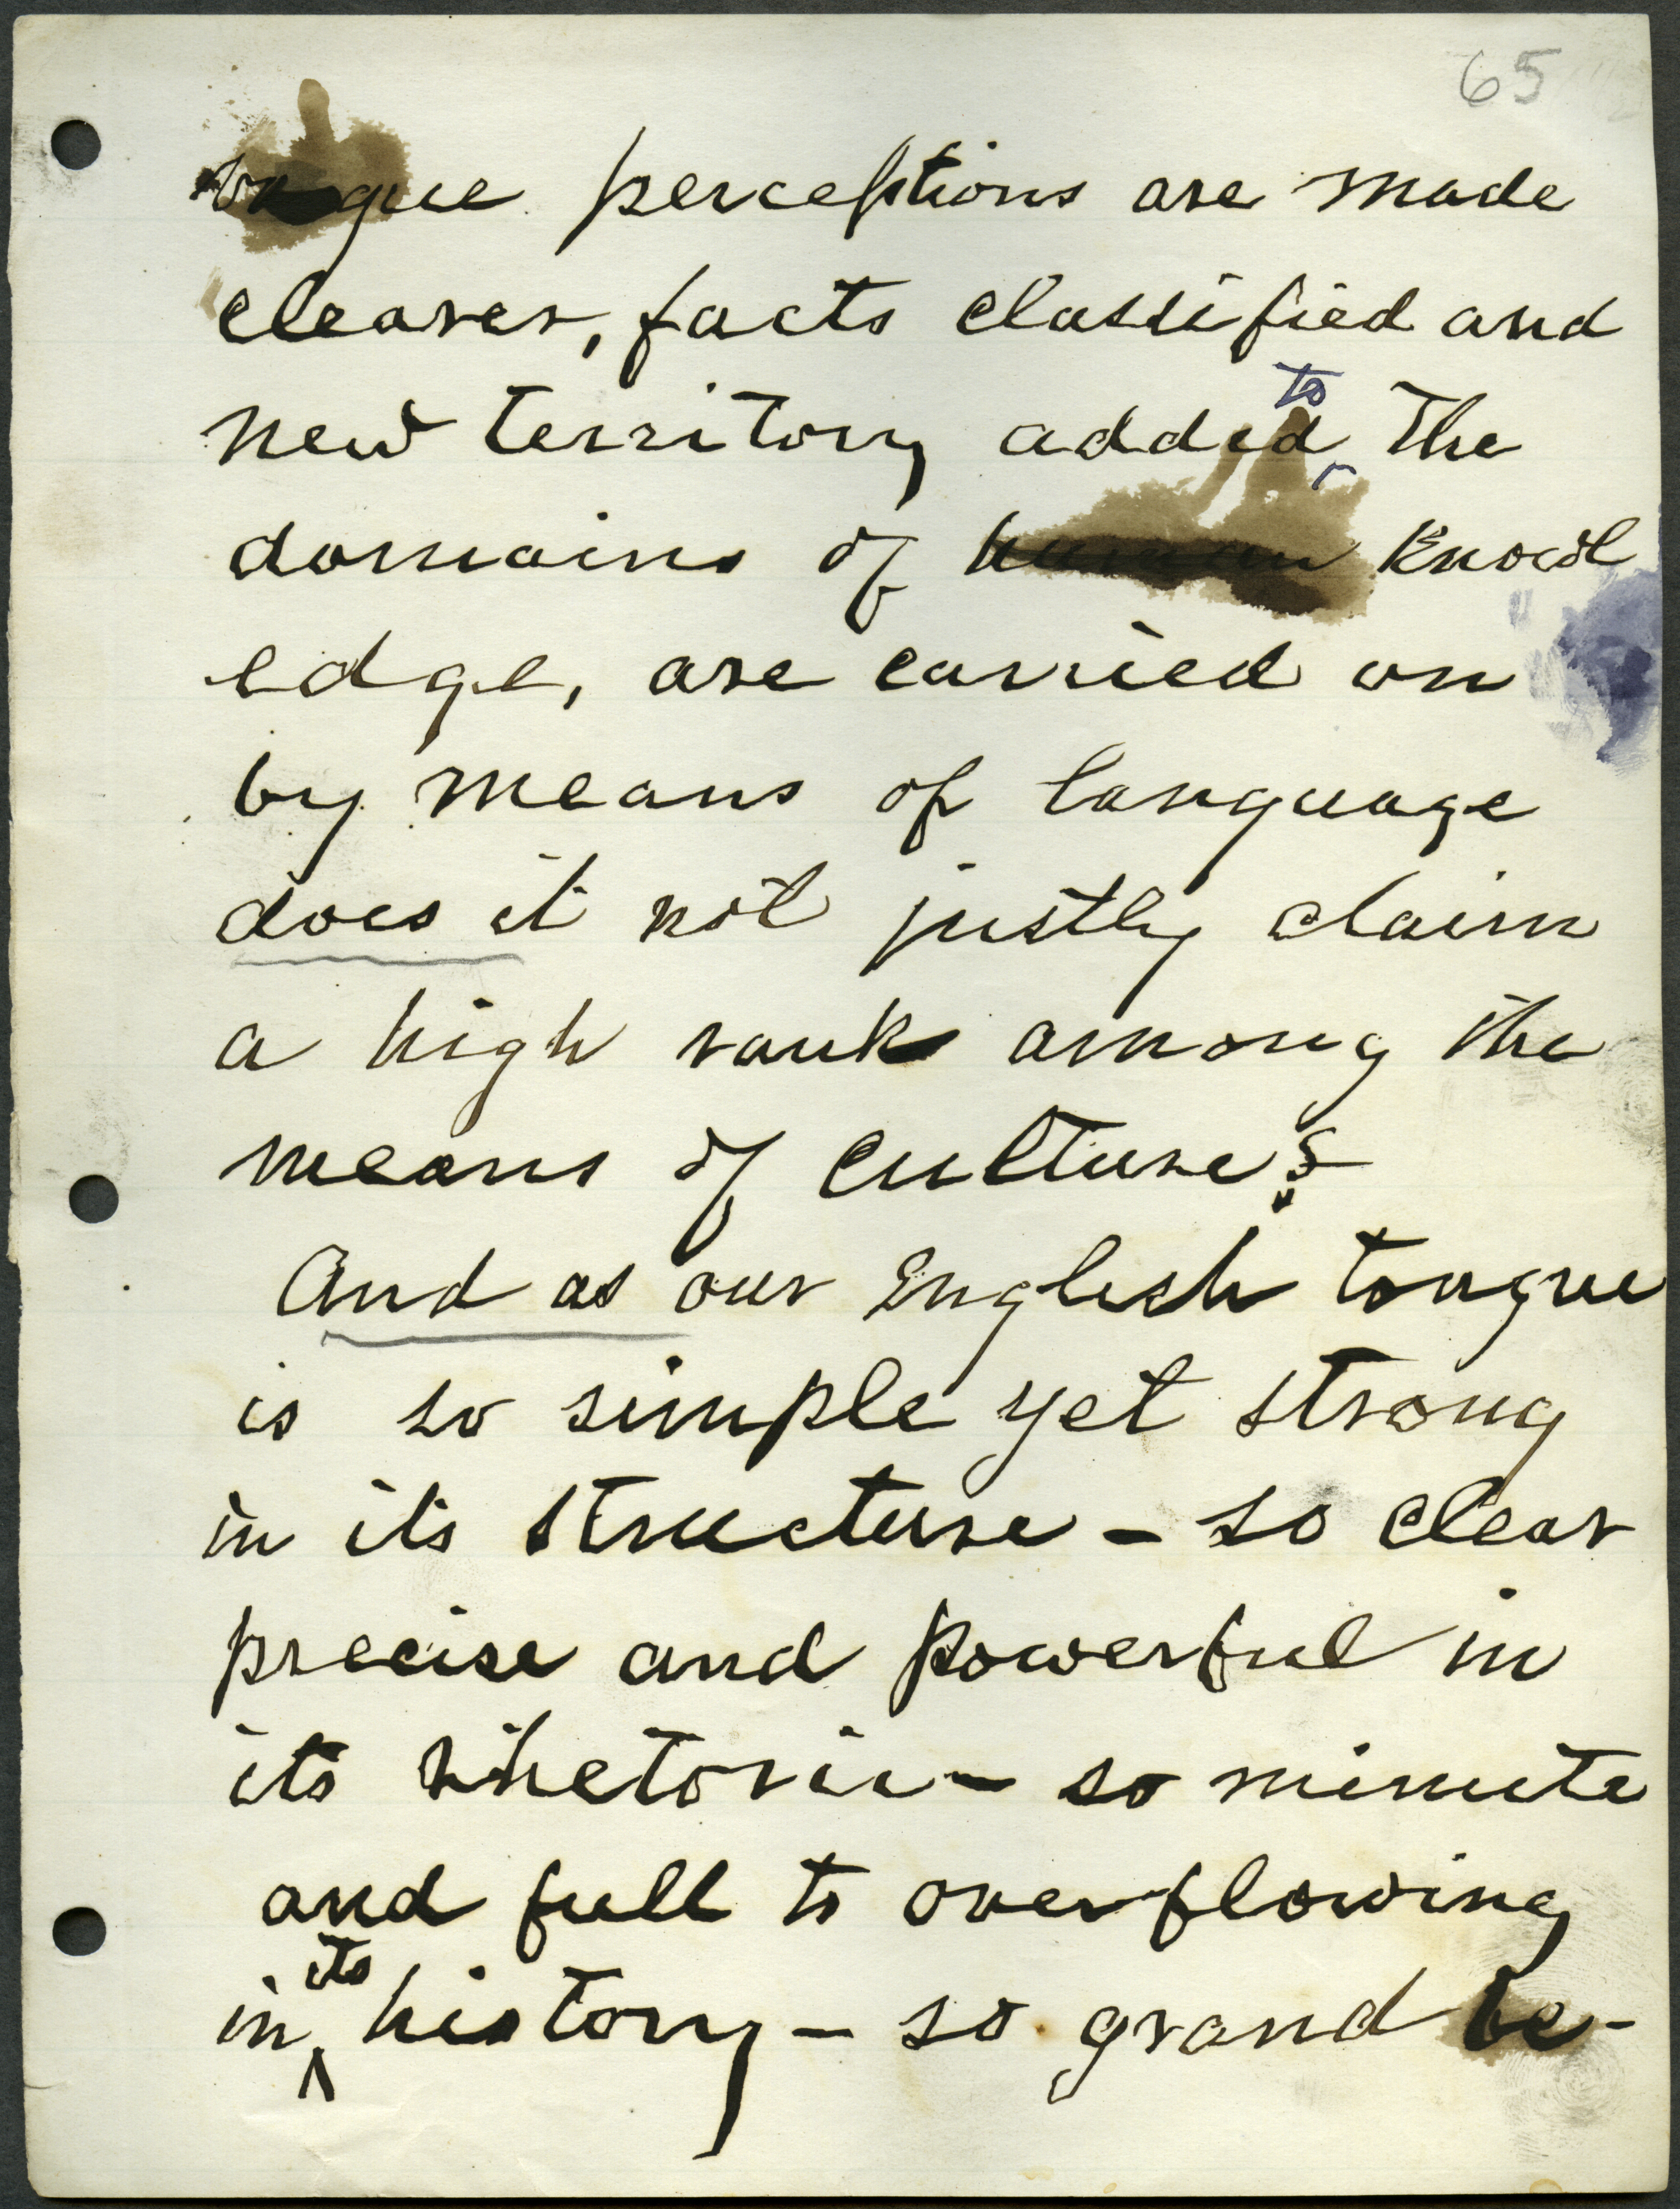 65
vague perceptions are made
clearer, facts classified and
new territory added to the
domains of human knowl
edge, are carried on
by means of language
does it not justly claim
a high rank among the
means of culture?
And as our English tongue
is so simple yet strong
in its structure - so clear
precise and powerful in
its rhetoric - so minute
and full to overflowing
in its history - so grand be-